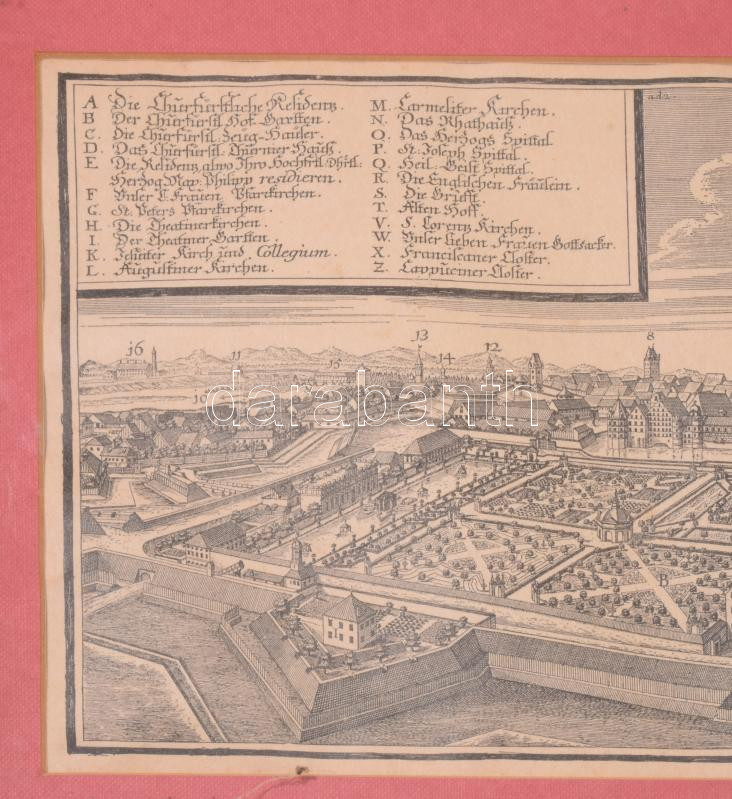 A Die Churfürstliche Residentz.
B Der Churfürstl. Hof. Gartten.
C. Die Churfürstl. Zeug-Häuser.
D. Das Churfürstl. Thurnier Hauß.
E Die Residentz alwo Ihro Hochfrtl. Dhrtl.
Herzog Max. Philipp residieren.
F Vnser L. Frauen Pfarrkirchen.
G. St. Peters Pfarrkirchen.
H. Die Theatinerkirchen.
I. Der Theatiner Gartten.
K. Jesuiter Kirch und Collegium.
L. Augustiner Kirchen.
M. Carmeliter Kirchen.
N. Das Rhathauß.
O. Das Herzogs Spittal.
P. St. Joseph Spittal.
Q. Heil. Geist Spittal.
R. Die Englischen Fräulein.
S. Die Grufft.
T. Alten Hoff.
V. S. Lorentz Kirchen.
W. Vnser lieben Frauen Gottsacker.
X. Franciscaner Closter.
Z. Cappuciner Closter.
16 11 15 13 14 12 8
darabanth
B